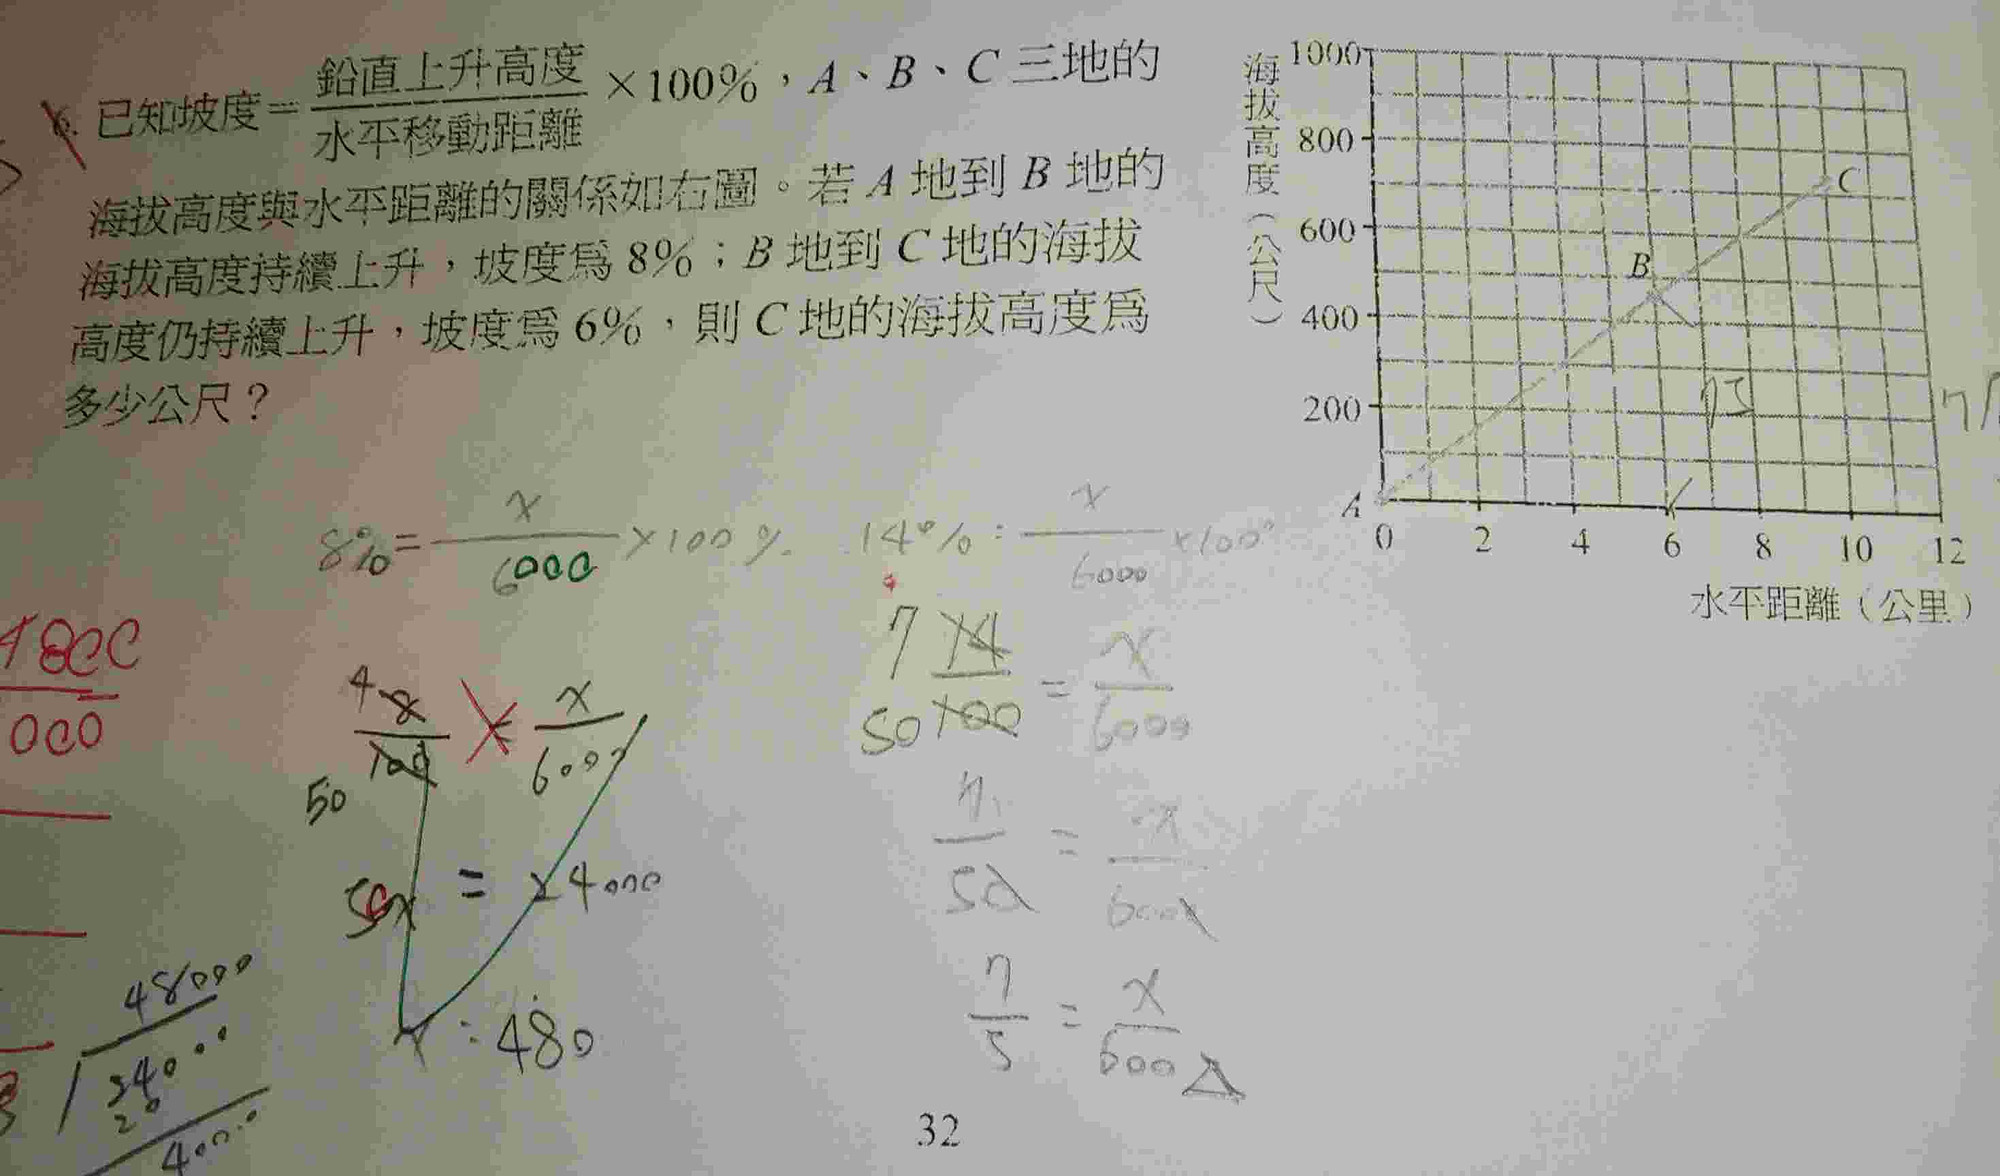 已知坡度=鉛直上升高度/水平移動距離×100%，A、B、C 三地的
海拔高度與水平距離的關係如右圖。若 A 地到 B 地的
海拔高度持續上升，坡度為 8%；B 地到 C 地的海拔
高度仍持續上升，坡度為 6%，則 C 地的海拔高度為
多少公尺？
海拔高度（公尺）
1000
800
600
400
200
A
B
C
0 2 4 6 8 10 12
水平距離（公里）
8%=x/6000×100%
14%=x/6000×100
4 8/100 50 = x/6000
50x = 24000
x:480
7 14/50 100 = x/6000
7/50 = x/6000
7/5 = x/600
4800
000
48000
24000
20
4000
32